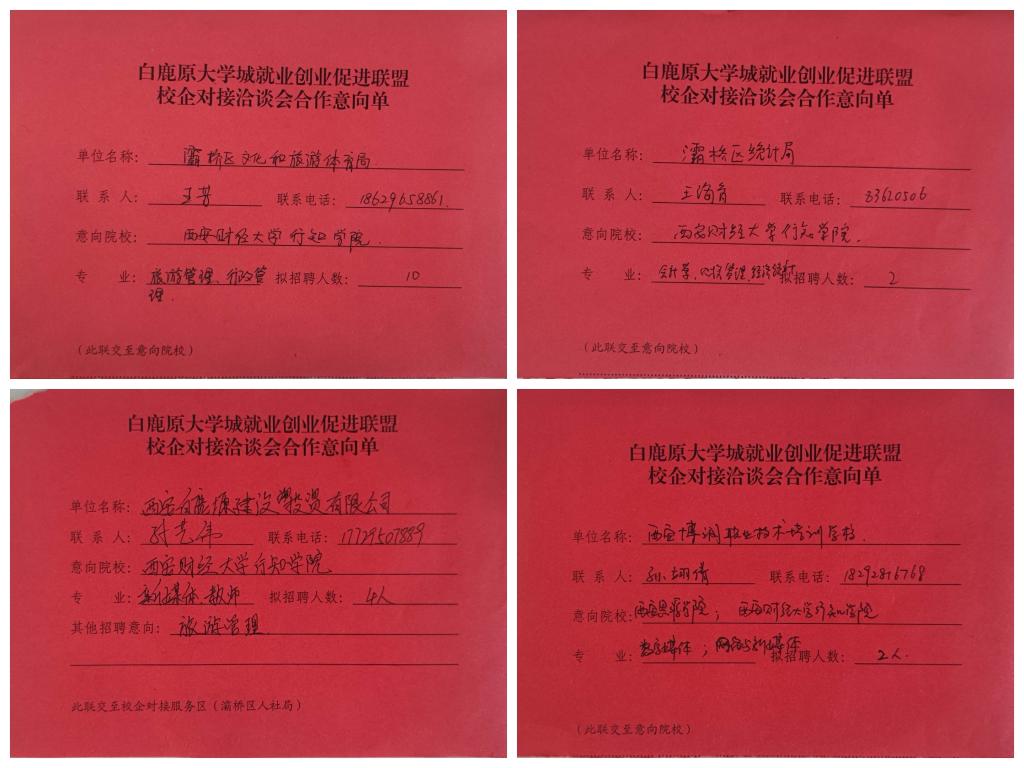 白鹿原大学城就业创业促进联盟
校企对接洽谈会合作意向单
单位名称： 灞桥区文化和旅游体育局
联 系 人： 王芳 联系电话： 18629658861.
意向院校： 西安财经大学行知学院.
专 业： 旅游管理、行政管 拟招聘人数： 10
理.
（此联交至意向院校）
白鹿原大学城就业创业促进联盟
校企对接洽谈会合作意向单
单位名称： 灞桥区统计局
联 系 人： 联系电话： 83620506
意向院校： 西安财经大学行知学院.
专 业： 会计学、 管理、经济统计 拟招聘人数： 2
（此联交至意向院校）
白鹿原大学城就业创业促进联盟
校企对接洽谈会合作意向单
单位名称： 西安白鹿塬建设投资有限公司
联 系 人： 联系电话： 17729507889
意向院校： 西安财经大学行知学院
专 业： 新媒体、教师 拟招聘人数： 4人
其他招聘意向： 旅游管理
此联交至校企对接服务区（灞桥区人社局）
白鹿原大学城就业创业促进联盟
校企对接洽谈会合作意向单
单位名称： 西安博润职业技术培训学校.
联 系 人： 孙翊倩 联系电话： 18292816768
意向院校： 西安思源学院； 西安财经大学行知学院
专 业： 数字媒体；网络与新媒体 拟招聘人数： 2人.
（此联交至意向院校）